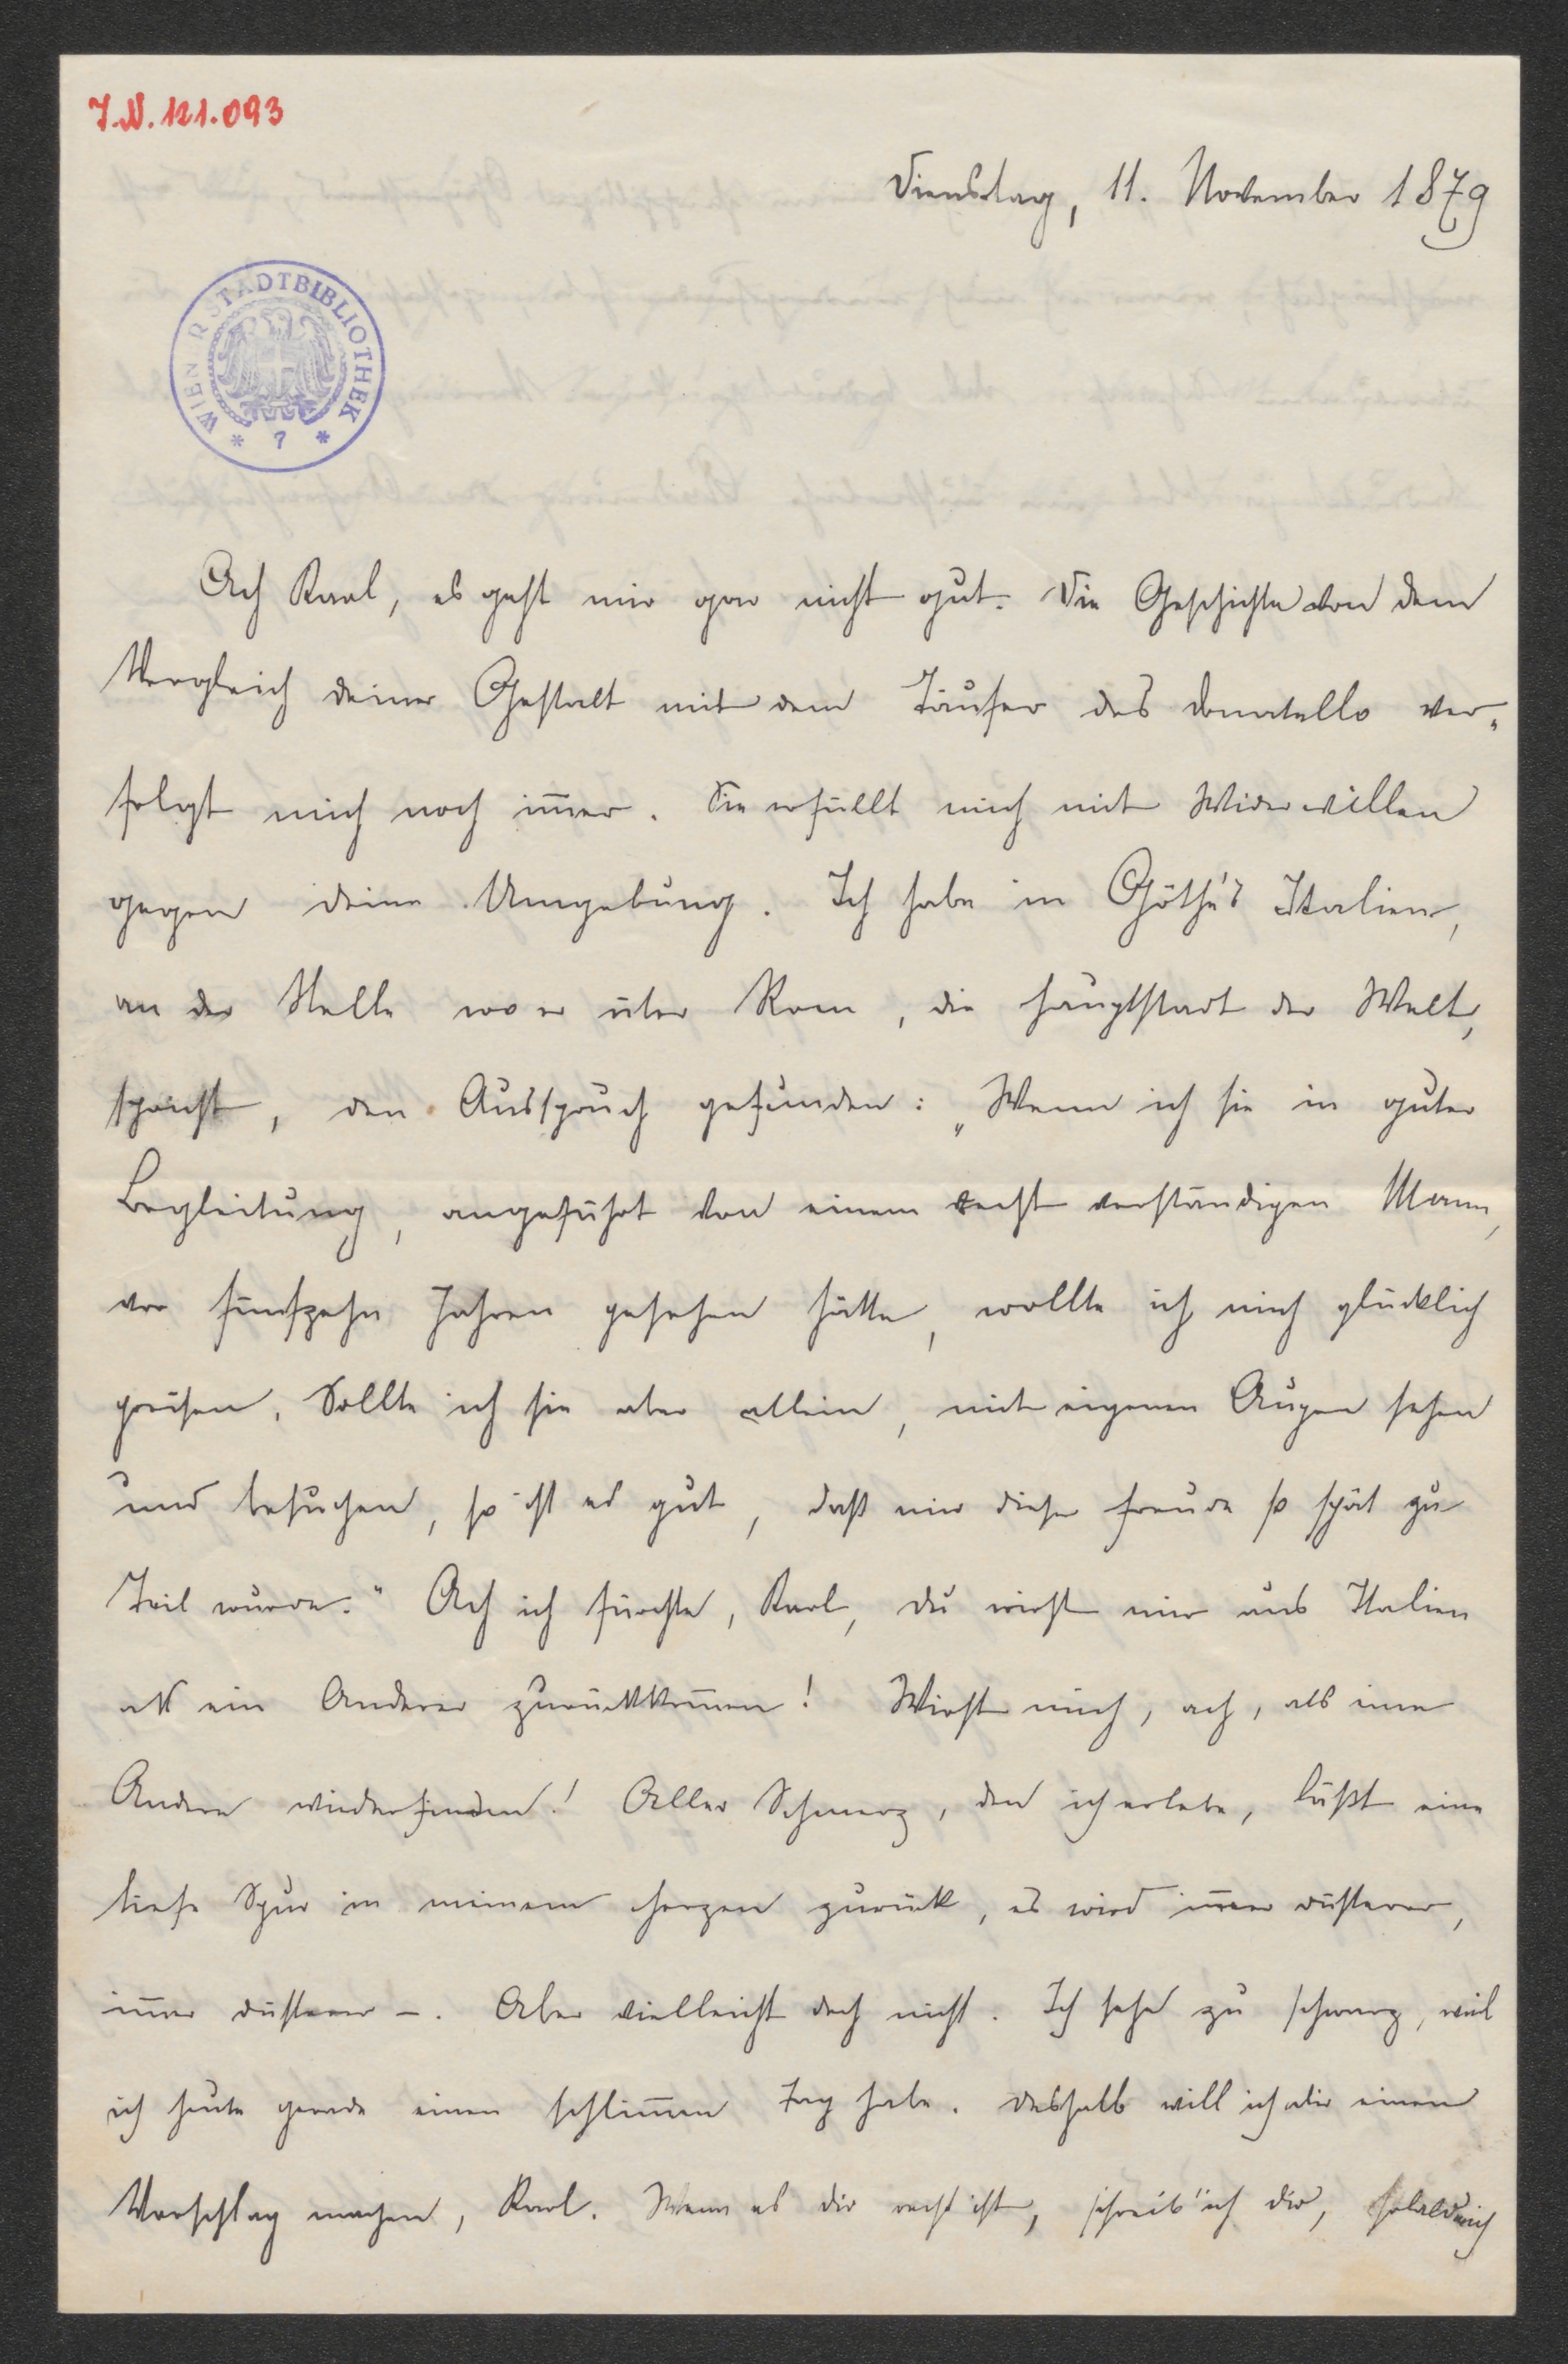 J.N. 121.093
Dienstag, 11. November 1879
WIENER STADTBIBLIOTHEK
* 7 *
Ach Karl, es geht mir gar nicht gut. Die Geschichte von dem
Vergleich deiner Gestalt mit dem Täufer des Donatello ver„
folgt mich noch im̅er. Sie erfüllt mich mit Widerwillen
gegen deine Umgebung. Ich habe in Göthe's Italien,
an der Stelle wo er über Rom, die Hauptstadt der Welt,
spricht, den Ausspruch gefunden: „Wenn ich sie in guter
Begleitung, angeführt von einem recht verständigen Mann,
vor fünfzehn Jahren gesehen hätte, wollte ich mich glücklich
preisen. Sollte ich sie aber allein, mit eigenen Augen sehen
und besuchen, so ist es gut, daß mir diese Freude so spät zu
Teil wurde." Ach ich fürchte, Karl, du wirst mir aus Italien
als ein Anderer zurückkom̅en! Wirst mich, ach, als eine
Andere wiederfinden! Aller Schmerz, den ich erlebe, läßt eine
tiefe Spur in meinem Herzen zurück, es wird im̅er düsterer,
im̅er düsterer –. Aber vielleicht doch nicht. Ich sehe zu schwarz, weil
ich heute gerade einen schlim̅en Tag habe. Deshalb will ich dir einen
Vorschlag machen, Karl. Wenn es dir recht ist, schreib' ich dir, sobald mich